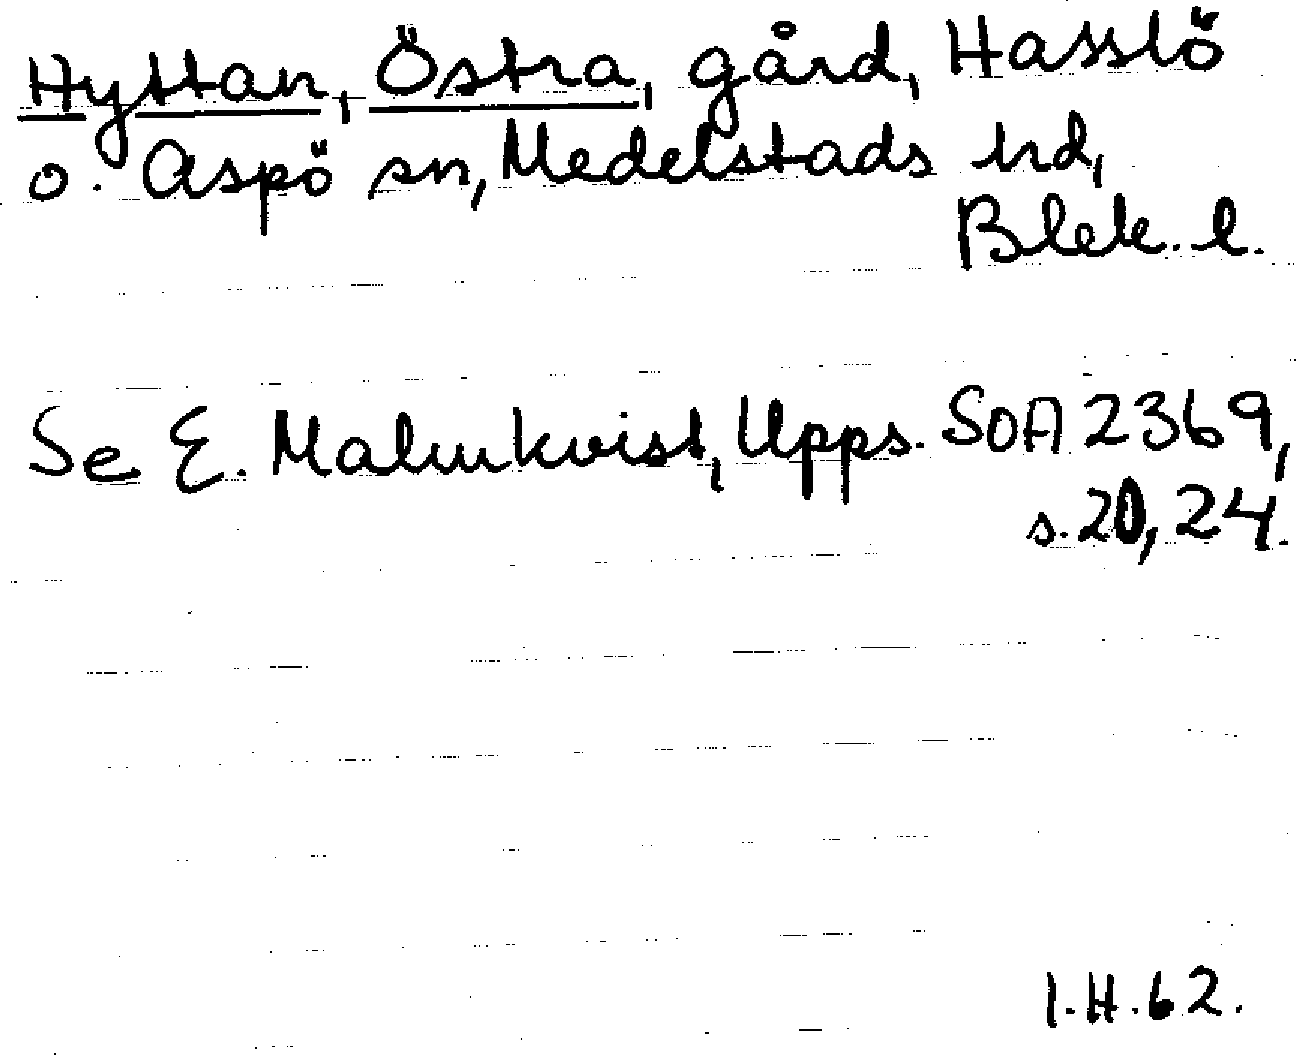 Hyttan, Östra, gård, Hasslö
o. Aspö sn, Medelstads hd,
Blek. l.
Se E. Malmkvist, Upps. SOA 2369,
s. 20, 24.
I.H. 62.